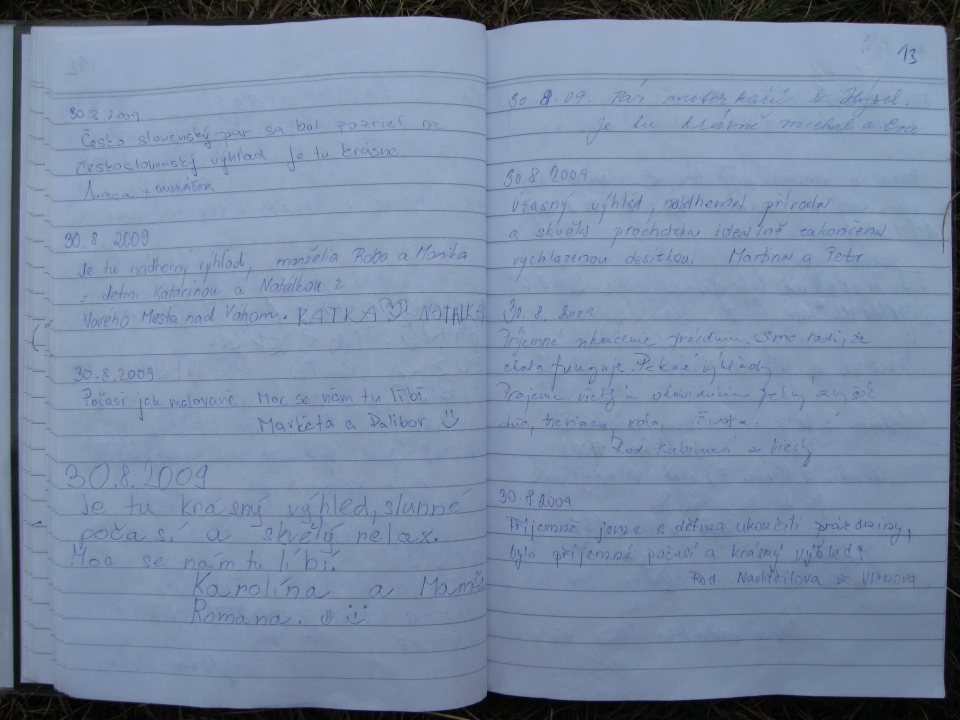 30.8.2009
Česko slovenský pár sa bol pozrieť na
československý výhľad je tu krásne
30.8 2009
Je tu nádherný výhľad, manželia Robo a Monika
s deťmi Katarínou a Natálkou z
Nového Mesta nad Váhom. KATKA NATALKA
30.8.2009
Počasí jak malované. Moc se nám tu líbí.
Markéta a Dalibor
30.8.2009
Je tu krásný výhled, slunné
počasí a skvělý relax.
Moc se nám tu líbí.
Karolína a Mamka
Romana.
13
30 8.09. Pár motorkářů z
je tu krásně Michal a Eva
30.8.2009
Úžasný výhled, nádherná příroda
a skvělá procházka ideálně zakončená
vychlazenou desítkou. Martina a Petr
30.8.2009
Príjemné ukončenie prázdnin. Sme radi, že
chata funguje. Pekné výhľady.
Prajeme pekný
dňa, roka, života
Rod. Kubinová z
30.8.2009
Příjemně jsme s dětma ukončili prázdniny,
bylo příjemné počasí a krásný výhled.
Rod z